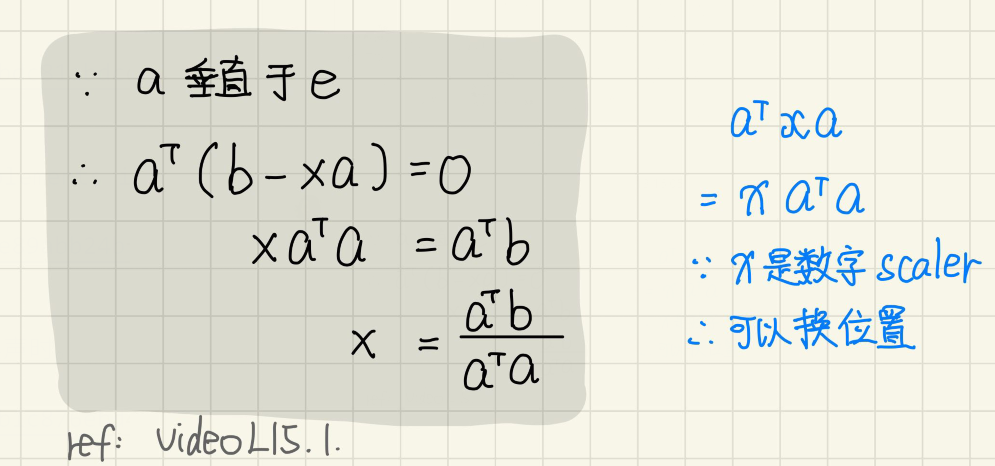 ∵ a 垂直于 e
∴ aᵀ(b - xa) = 0
xaᵀa = aᵀb
x = aᵀb / aᵀa
ref: video L15.1.
aᵀxa
= x aᵀa
∵ x是数字 scaler
∴ 可以换位置